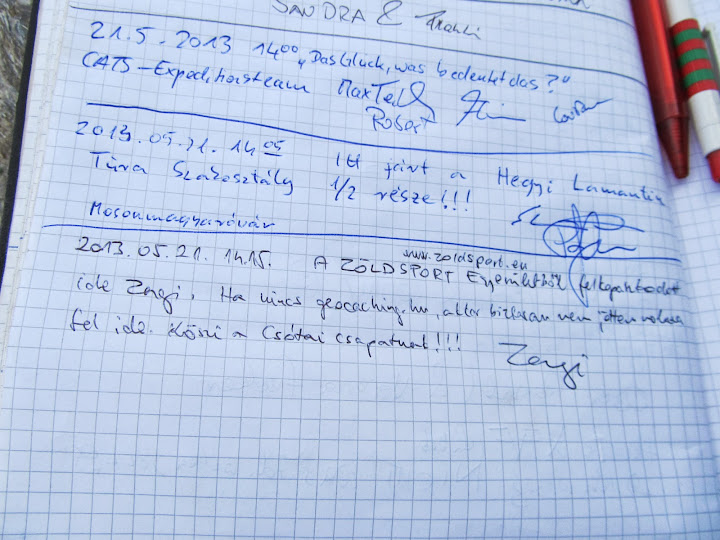 SANDRA &
21.5.2013 14⁰⁰ "Das Glück, was bedeutet das?"
CATS-Expeditionsteam MaxTell
Robert
2013.05.21. 14⁰⁵ Itt járt a Hegyi Lamantin
Túra Szakosztály 1/2 része!!!
Mosonmagyaróvár
www.zoldsport.eu
2013.05.21. 14.15. A ZÖLDSPORT Egyesülettől felkapaszkodott
ide Zergi. Ha nincs geocaching.hu, akkor biztosan nem jöttem volna
fel ide. Köszi a Csótai csapatnak!!!
Zergi